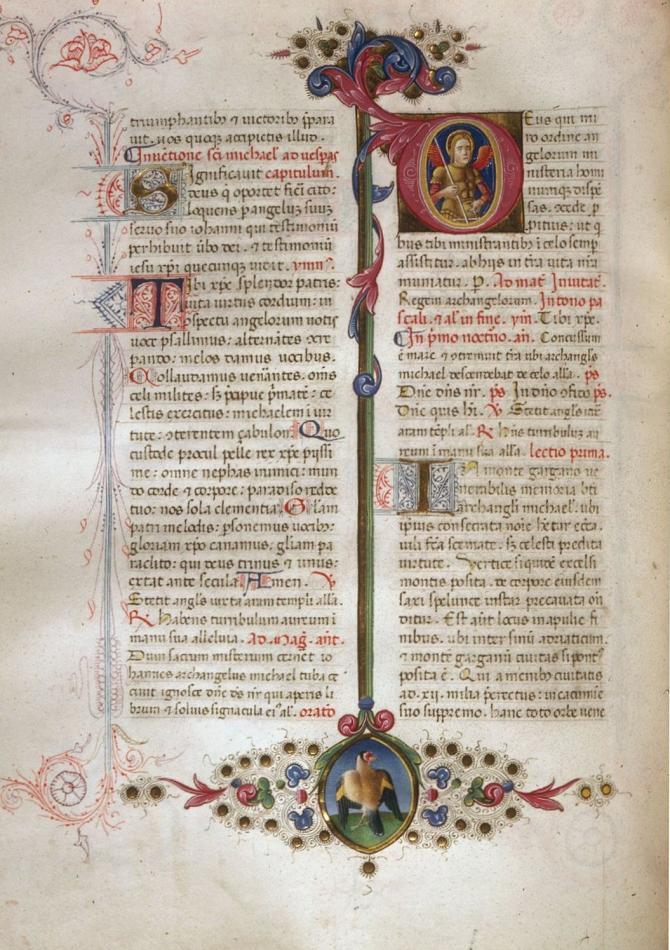 triumphantibꝫ ⁊ victoribꝫ p̄para
uit. uos quoqꝫ accipietis illud.
Inuētione sci michael ad uesꝑas
capitulum.
Significauit
deus q̄ oportet fieri cito:
loquens p angelū suuꝫ
seruo suo iohanni qui testimoniū
perhibuit ūbo dei. ⁊ testimoniū
iesu xp̄i quecumqꝫ uidit. ymn⁹.
Tibi xp̄e splendor patris:
uita uirtus cordium: in
ɔspectu angelorum uotis
uoce psallimus: alternātes
pando: melos damus uocibus.
Collaudamus uenātes. om̄s
celi milites: sꝫ p̄cipue p̄matē: ce
lestis exercitus: michaelem i uir
tute: ɔterentem çabulon. Quo
custode procul pelle rex xp̄e pijssi
me: omne nephas inimici: mun
do corde ⁊ corpore: paradiso redde
tuo: nos sola clementia. Gl̄iam
patri melodis: ꝑsonemus uocibꝫ:
gloriam xp̄o canamus: gl̄iam pa
raclito: qui deus trinus ⁊ unus:
extat ante secula. Amen. ℣
Stetit angl̄s iuxta aram templi alla.
℟ Habens turibulum aureum i
manu sua alleluia. Ad Maḡ. ant̄.
Dum sacrum misterium cerneret io
hannes archangelus michael tuba ce
cinit ignosce dn̄e ds̄ nr̄ qui aperis li
brum ⁊ soluis signacula ei⁹ al⁹. oratio
Deus qui mi
ro ordine an
gelorum mi
nisteria homi
numqꝫ dispē
sas. ɔcede p
pitius: ut q̄
bus tibi ministrantibꝫ i celo semp
assistitur. ab hijs in tr̄a uita nr̄a
muniatur. P. Ad mat̄ Inuitat̄.
Regem archangelorum. In tono pa
scali. ⁊ al̄ in fine. ym̄. Tibi xp̄e.
In p̄mo nocturno. an̄. Concussum
ē mare ⁊ ɔtremuit tr̄a ubi archangl̄s
michael descendebat de celo alla. ps̄
Dn̄e dn̄s nr̄. ps̄ In dn̄o ɔfido ps̄.
Dn̄e quis hi. ℣ Stetit angl̄s iux̄
aram tēpli al̄. ℟ Hn̄s turibuluꝫ au
reum i manu sua alla. lectio prima.
monte gargano ue
nerabilis memoria bt̄i
archangli michael: ubi
ipsius consecrata noīe hētur eccl̄a.
uili fc̄a scemate. sꝫ celesti predita
uirtute. Vertice siquidē excelsi
montis posita. de corpore eiusdem
saxi spelunce instar precauata on̄
ditur. Est aūt locus in apulie fi
nibus. ubi inter sinū adriaticum.
⁊ montē garganū ciuitas siponti⁹
posita ē. Qui a menibꝫ ciuitatis
ad .xij. milia p̄erectus: in cacumie
suo supremo. hanc toto orbe uene